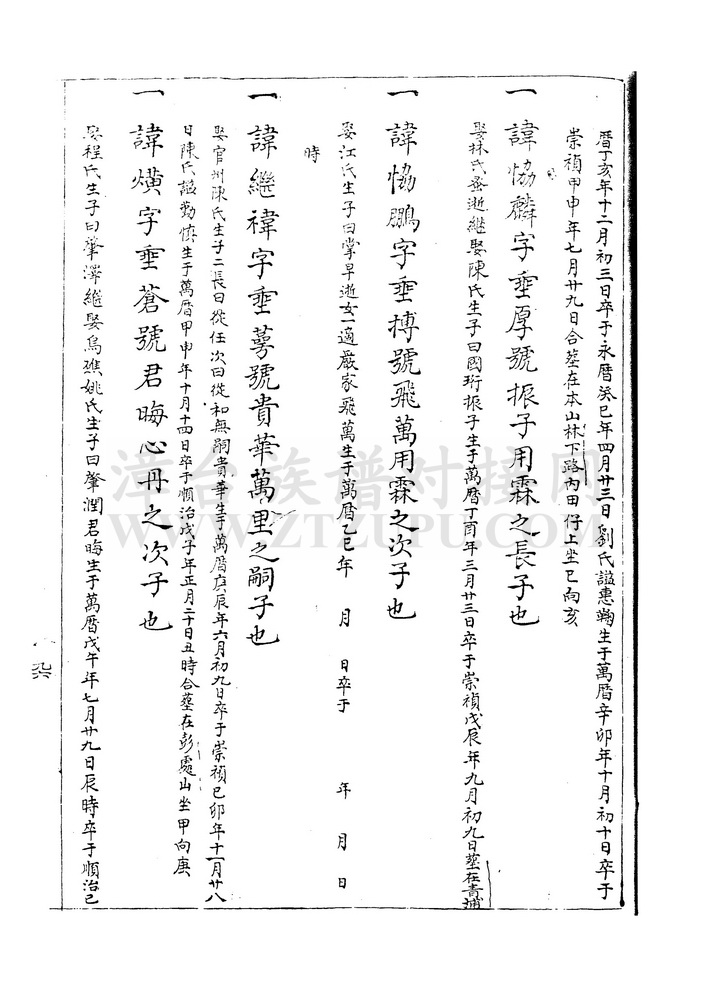 曆丁亥年十二月初三日卒于永曆癸巳年四月廿三日劉氏謚惠鞠生于萬曆辛卯年十月初十日卒于
崇禎甲申年七月廿九日合墓在本山林下路內田仔上坐巳向亥
一 諱恊麟字垂厚號振子用霖之長子也
娶林氏蚤逝継娶陳氏生子曰國珩振子生于萬曆丁酉年三月廿三日卒于崇禎戊辰年九月初九日墓在青埔
一 諱恊鵬字垂搏號飛萬用霖之次子也
娶江氏生子曰掌早逝女一適嚴家飛萬生于萬曆乙巳年 月 日卒于 年 月 日
時
一 諱継禕字垂蕚號貴華萬里之嗣子也
娶官州陳氏生子二長曰從任次曰從和無嗣貴華生于萬曆庚辰年六月初九日卒于崇禎己卯年十一月廿八
日陳氏謚勤慎生于萬曆甲申年十月十四日卒于順治戊子年正月二十日丑時合墓在彭處山坐甲向庚
一 諱熿字垂蒼號君晦心丹之次子也
娶程氏生子曰肇澤継娶烏礁姚氏生子曰肇潤君晦生于萬曆戊午年七月廿九日辰時卒于順治己
漳台族谱对接网
WWW.ZTZUPU.COM